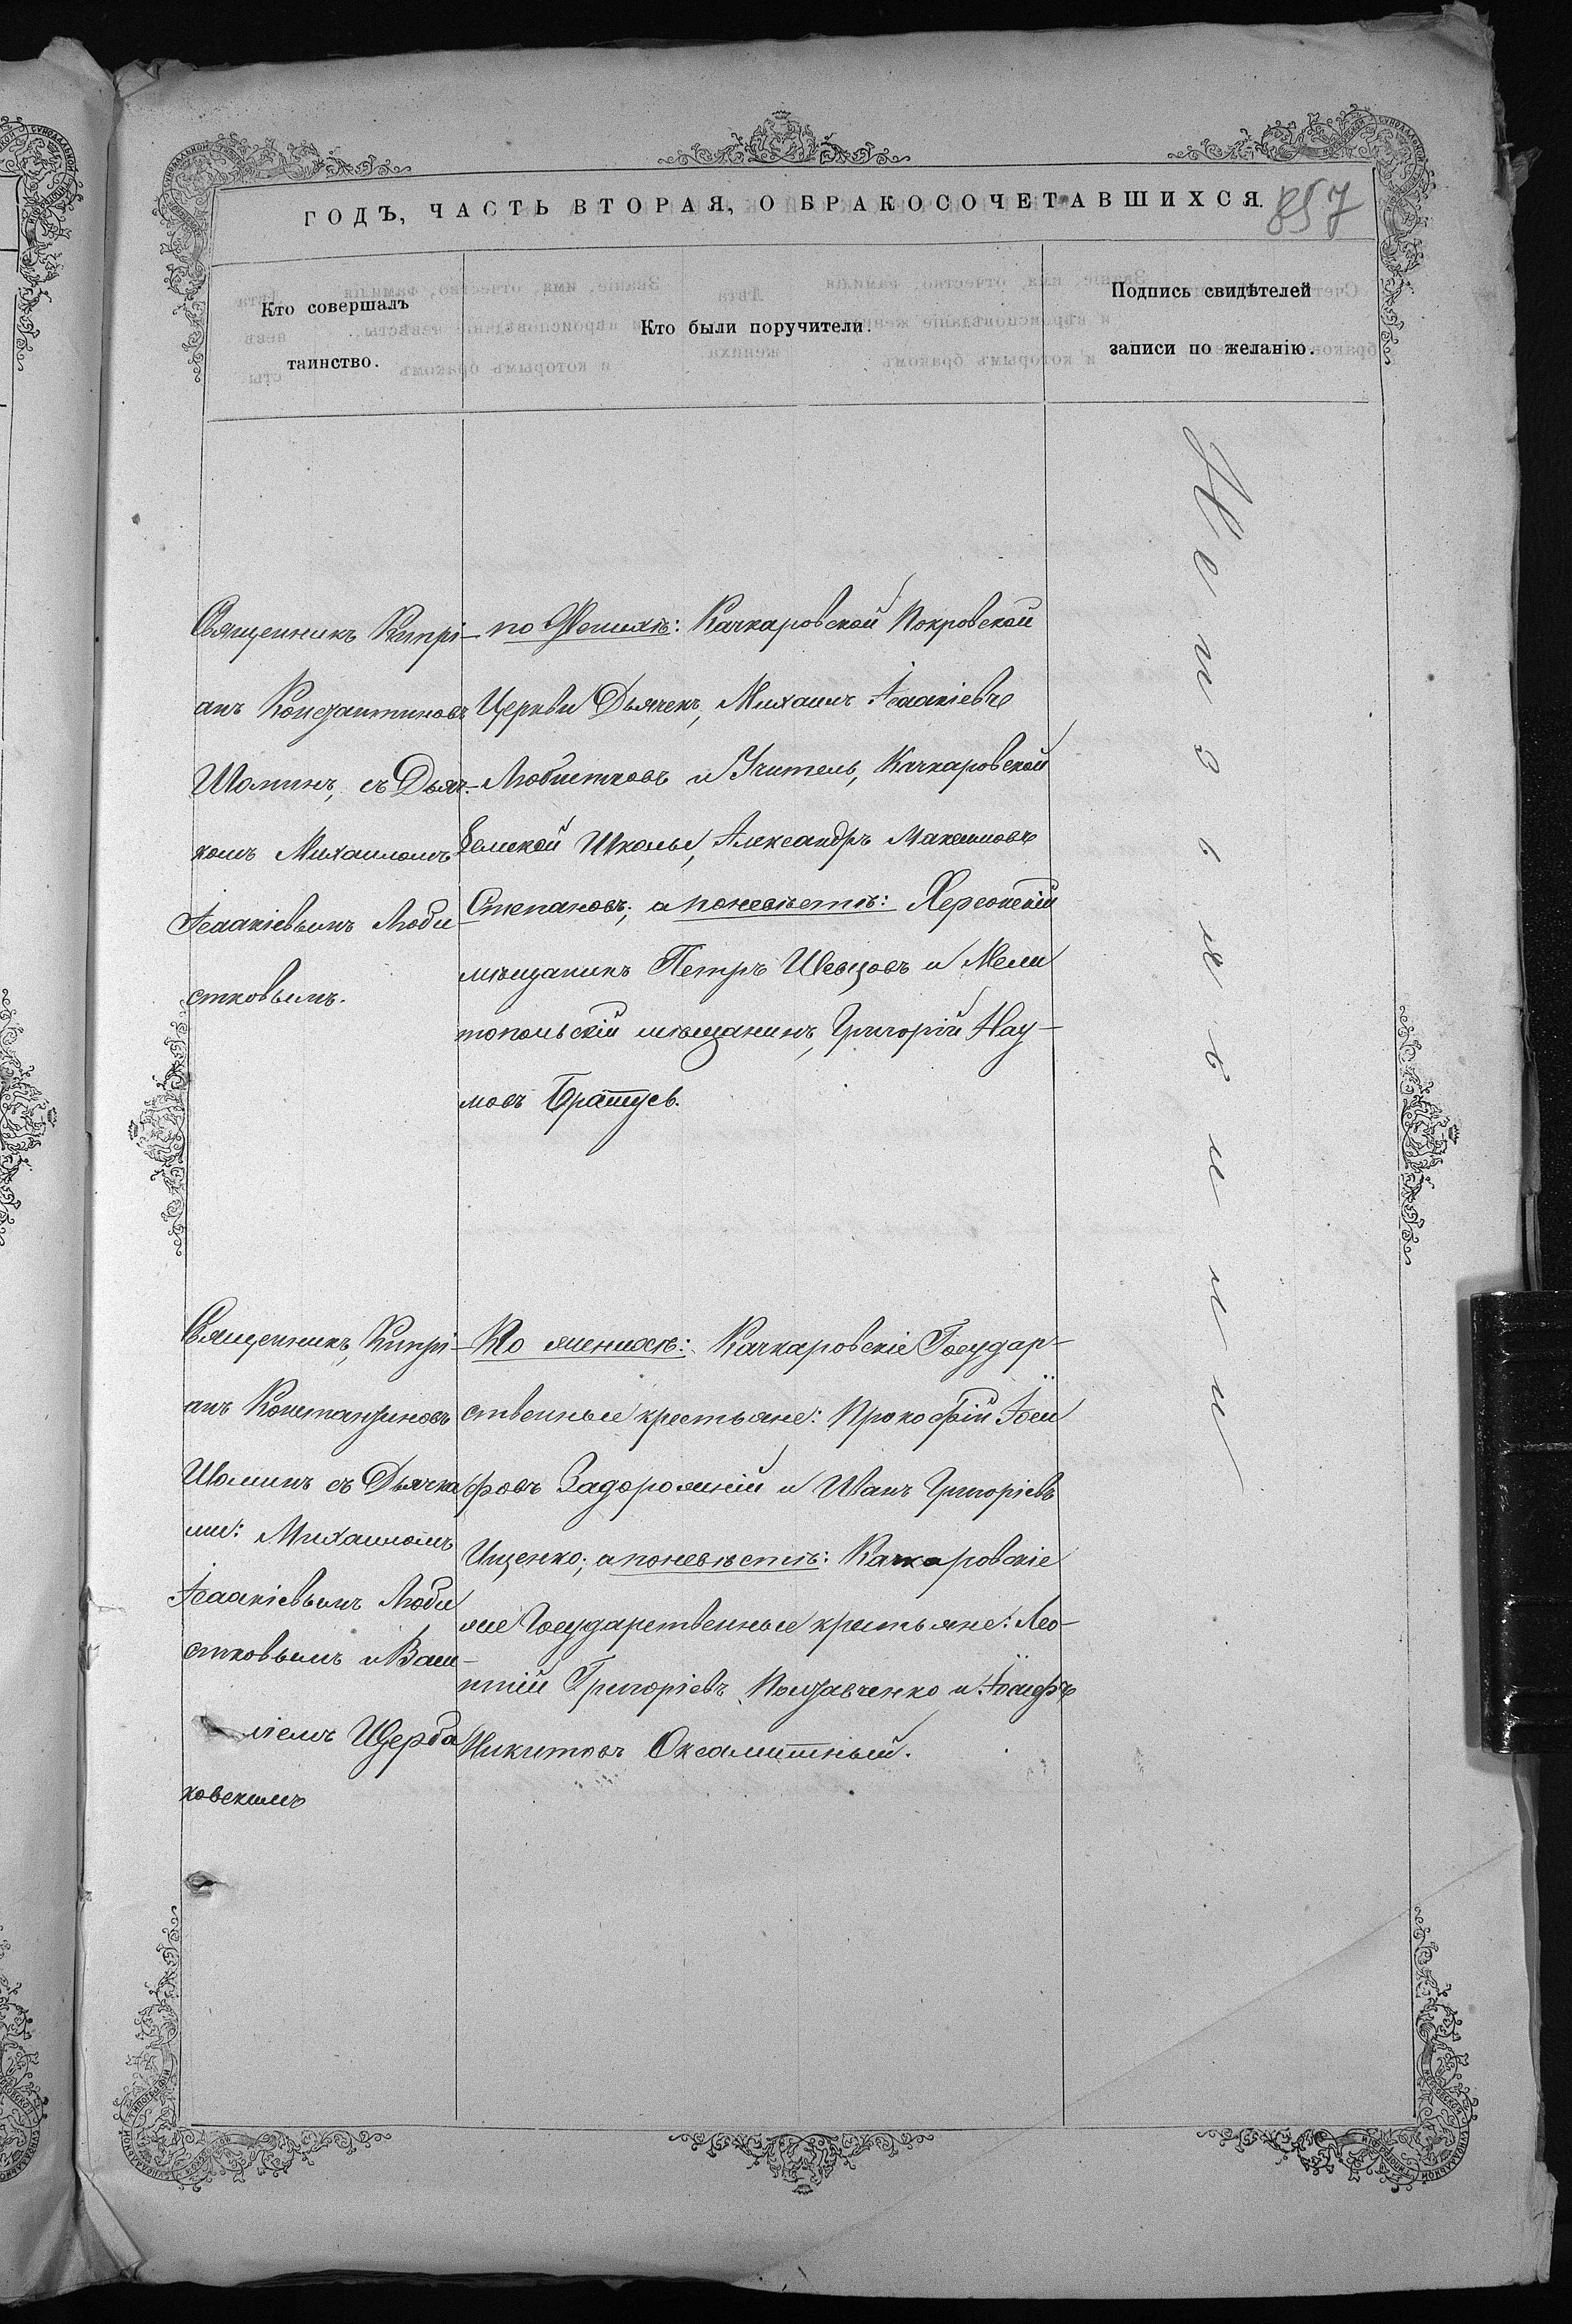 ГОДЪ, ЧАСТЬ ВТОРАЯ, О БРАКОСОЧЕТАВШИХСЯ.
857
Кто совершалъ
таинство.
Кто были поручители.
Подпись свидѣтелей
записи по желанію.
Священникъ Кипрі-
анъ Константиновъ
Шоминъ, съ Дьяч-
комъ Михаиломъ
Ісаакіевымъ Люби
стковымъ.
по Женихѣ: Качкаровской Покровской
Церкви Дьячекъ, Михаилъ Ісаакіевъ
Любистковъ и Учитель, Качкаровской
Земской Школы, Александръ Максимовъ
Степановъ; а поневѣстѣ: Херсонскій
мѣщанинъ Петръ Швецовъ и Мели
топольскій мѣщанинъ, Григорій Нау-
мовъ Братусь.
Священникъ, Кипрі-
анъ Константиновъ
Шоминъ съ Дьячка
ми: Михаиломъ
Ісаакіевымъ Люби
стковымъ и Васи-
ліемъ Щерба
ковскимъ
По женихѣ: Качкаровскіе Государ-
ственные крестьяне: Прокофій Іоси
фовъ Задорожній и Иванъ Григоріевъ
Ищенко; а поневѣстѣ: Качкаровскіе
же Государственные крестьяне: Лео-
нтій Григоріевъ Полтавченко и Іосифъ
Никитовъ Оксамитный.